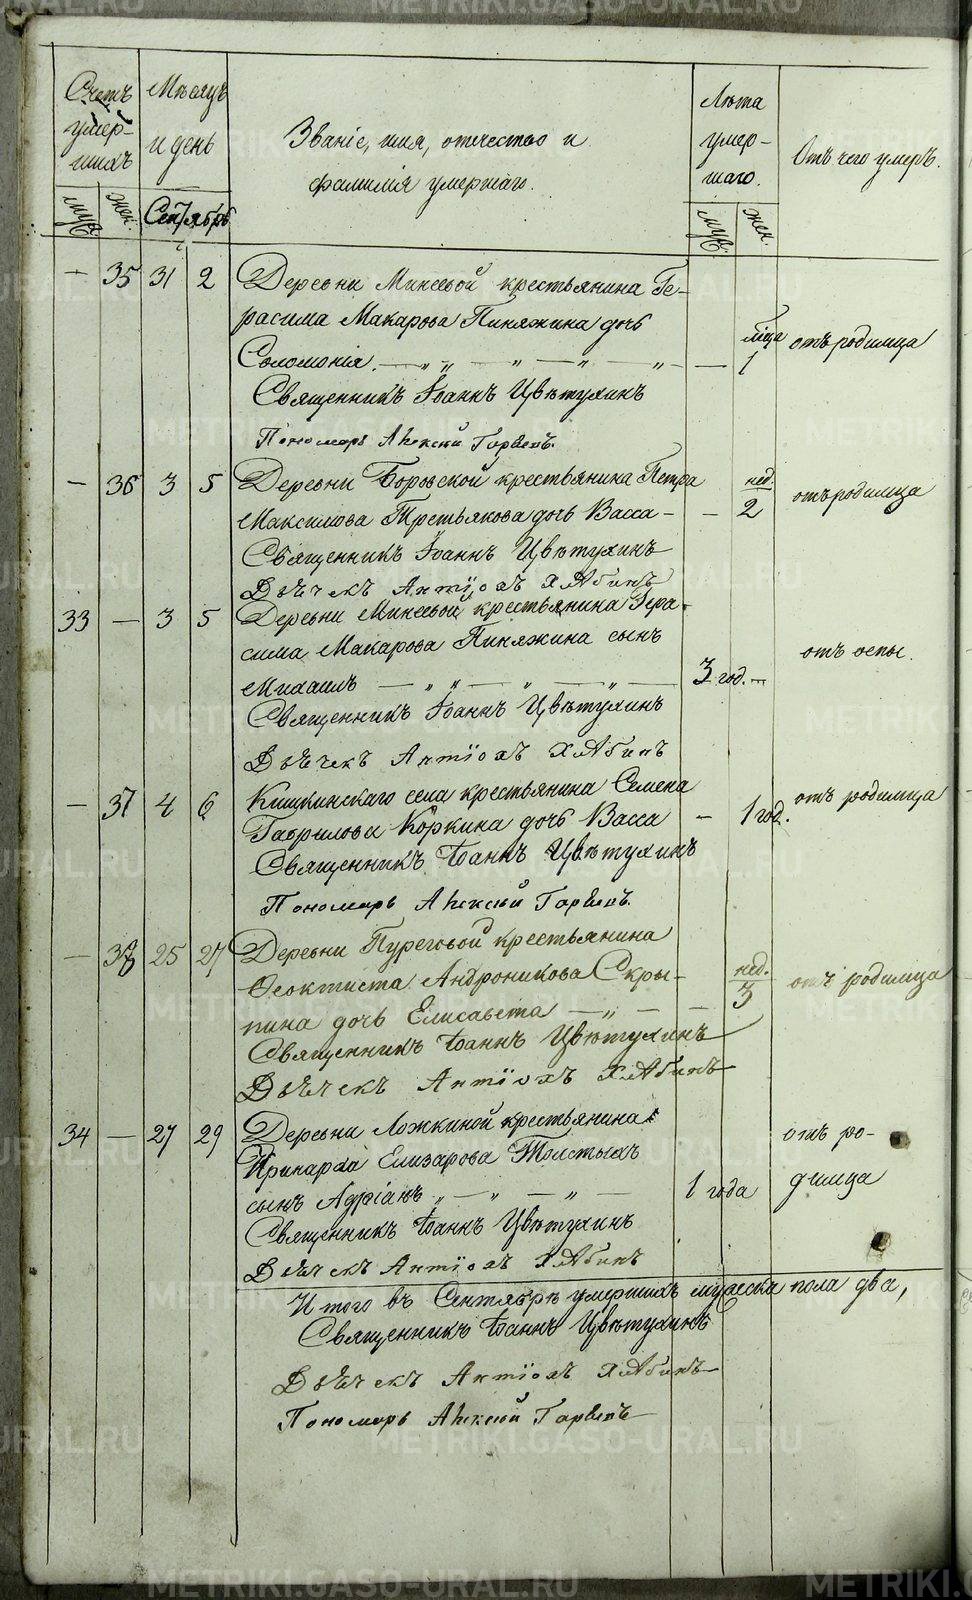 Счетъ умер-шихъ
Мѣсяцъ и день
Званіе, имя, отчество и фамилія умершаго.
Лѣта умер-шаго.
Отъ чего умеръ.
муж. жен. Сентябрь муж. жен.
— 35 31 2 Деревни Минеевой крестьянина Ге-
расима Макарова Пиняжина дочь
Соломонія. — „ „ — „ — „ — „ — мѣсяца 1 отъ родимца
Священникъ Іоаннъ Цвѣтухинъ
Пономарь Алексій Горбевъ.
— 36 3 5 Деревни Боровской крестьянина Петра
Максимова Третьякова дочь Васса — — нед. 2 отъ родимца
Священникъ Іоаннъ Цвѣтухинъ
Дьячекъ Антіохъ Хлябинъ
33 — 3 5 Деревни Минеевой крестьянина Гера-
сима Макарова Пиняжина сынъ
Михаилъ — „ „ — „ — „ — 3 год. — отъ оспы.
Священникъ Іоаннъ Цвѣтухинъ
Дьячекъ Антіохъ Хлябинъ
— 37 4 6 Кишкинскаго села крестьянина Семена
Гаврилова Коркина дочь Васса — 1 год. отъ родимца
Священникъ Іоаннъ Цвѣтухинъ
Пономарь Алексій Горбевъ.
— 38 25 27 Деревни Туреговой крестьянина
Ѳеоктиста Андроникова Скры-
пина дочь Елисавета — „ — — нед. 3 отъ родимца
Священникъ Іоаннъ Цвѣтухинъ
Дьячекъ Антіохъ Хлябинъ
34 — 27 29 Деревни Ложкиной крестьянина
Иринарха Елизарова Толстыхъ
сынъ Адріанъ „ — „ — „ — 1 года отъ ро-
димца
Священникъ Іоаннъ Цвѣтухинъ
Дьячекъ Антіохъ Хлябинъ
Итого въ Сентябрѣ умершихъ мужеска пола два,
Священникъ Іоаннъ Цвѣтухинъ
Дьячекъ Антіохъ Хлябинъ
Пономарь Алексій Горбевъ
METRIKI.GASO-URAL.RU